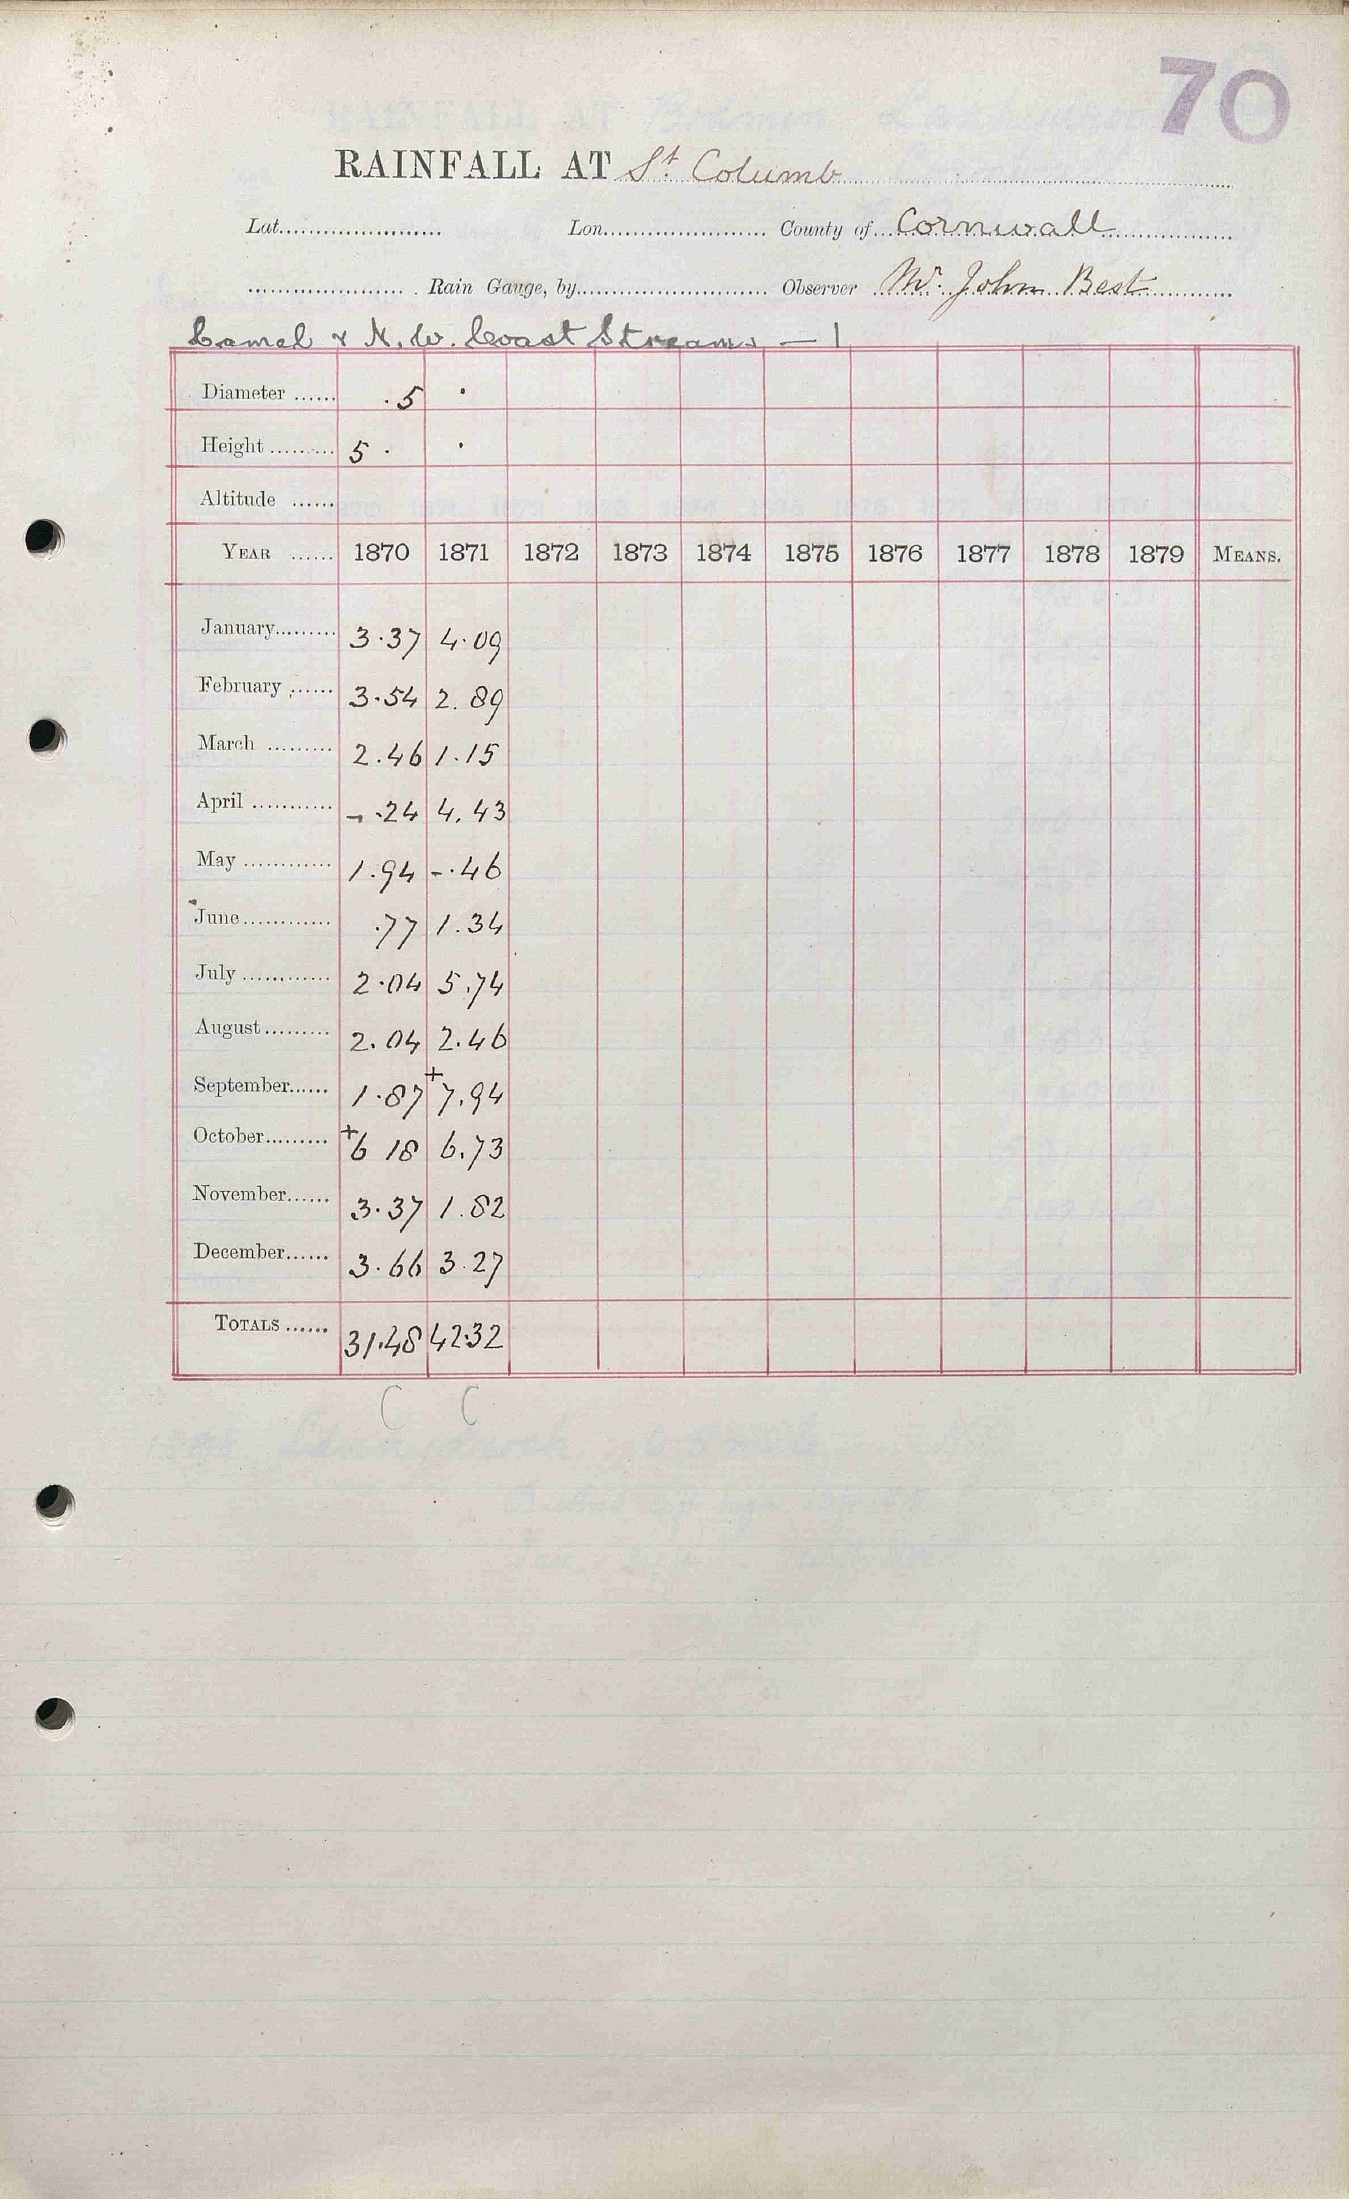 70
RAINFALL AT St Columb
Lat. Lon. County of Cornwall
Rain Gauge, by Observer Mr. John Best
Camel & N. W. Coast Streams — 1
Diameter ...... .5 .
Height ......... 5 . .
Altitude ......
YEAR ...... 1870 1871 1872 1873 1874 1875 1876 1877 1878 1879 MEANS.
January......... 3.37 4.09
February ...... 3.54 2.89
March ......... 2.46 1.15
April ............ - .24 4.43
May ............ 1.94 - .46
June............ .77 1.34
July ............ 2.04 5.74
August......... 2.04 2.46
September...... 1.87 +7.94
October......... +6 18 6.73
November...... 3.37 1.82
December...... 3.66 3.27
TOTALS ...... 31.48 42.32
C C